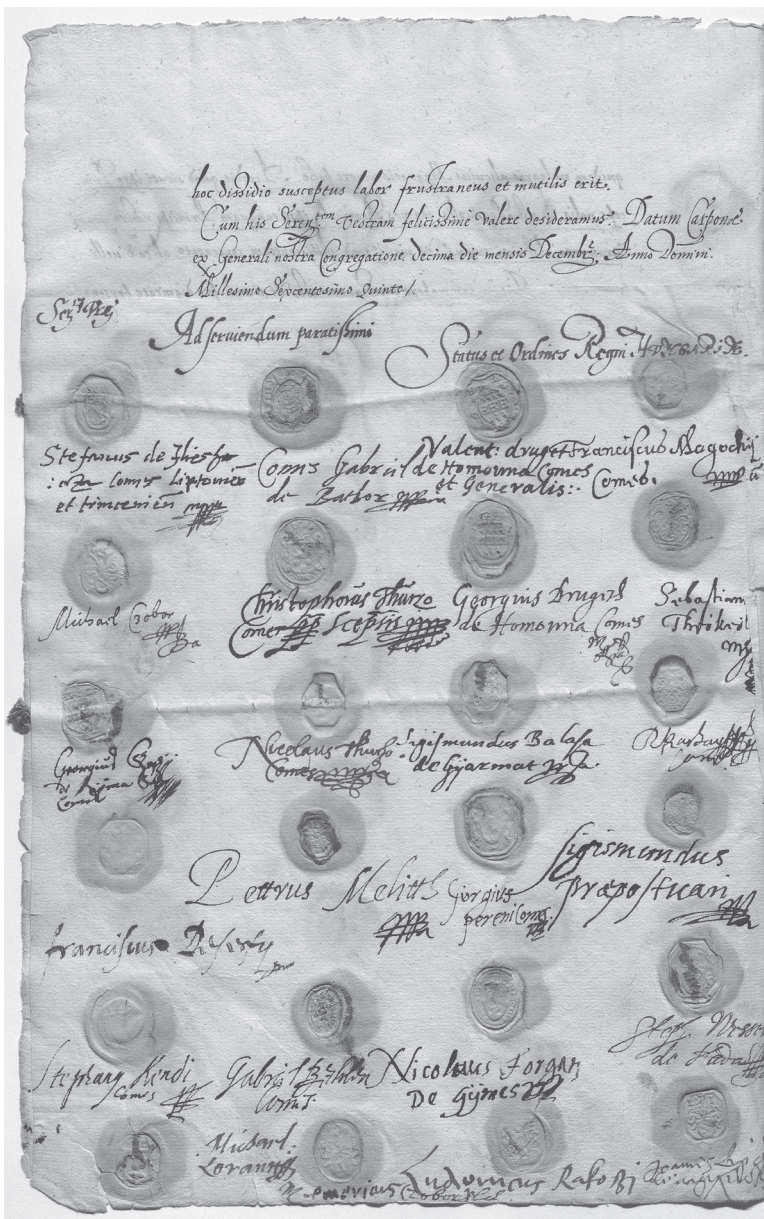 hoc dissidio susceptus labor frustraneus et inutilis erit.
Cum his Seren:tem Vestram felicissime valere desideramus. Datum Carponæ
ex Generali nostra Congregatione decima die mensis Decembr: Anno Domini.
Millesimo Sexcentesimo Quinto /
Ad serviendum paratissimi
Status et Ordines Regni
Stefanus de
comes Liptoniēn
et trinceniēn
Comes Gabriel
de Bathor
Valent: druget
de Homonna Comes
et Generalis:
Franciscus Magochÿ
Comes.
Michael Czobor
Christophorus Thurzo
Comes Scepsis
Georgius Druget
de Homonna Comes
Sebastian
Thököli
Georgius
Comes
Nicolaus Thurzo
Comes
Sigismundus Balasa
de Gyarmat
Pettrus Melith
Georgius
pereni Comes
Sigismundus
præpostuari
Franciscus
Stephany Kendi
Comes
Gabriel Bethlen
Comes
Nicolaus Forgatz
De Gÿmes
Michael
Lorant
Czobor
Ludovicus Rakoʒi